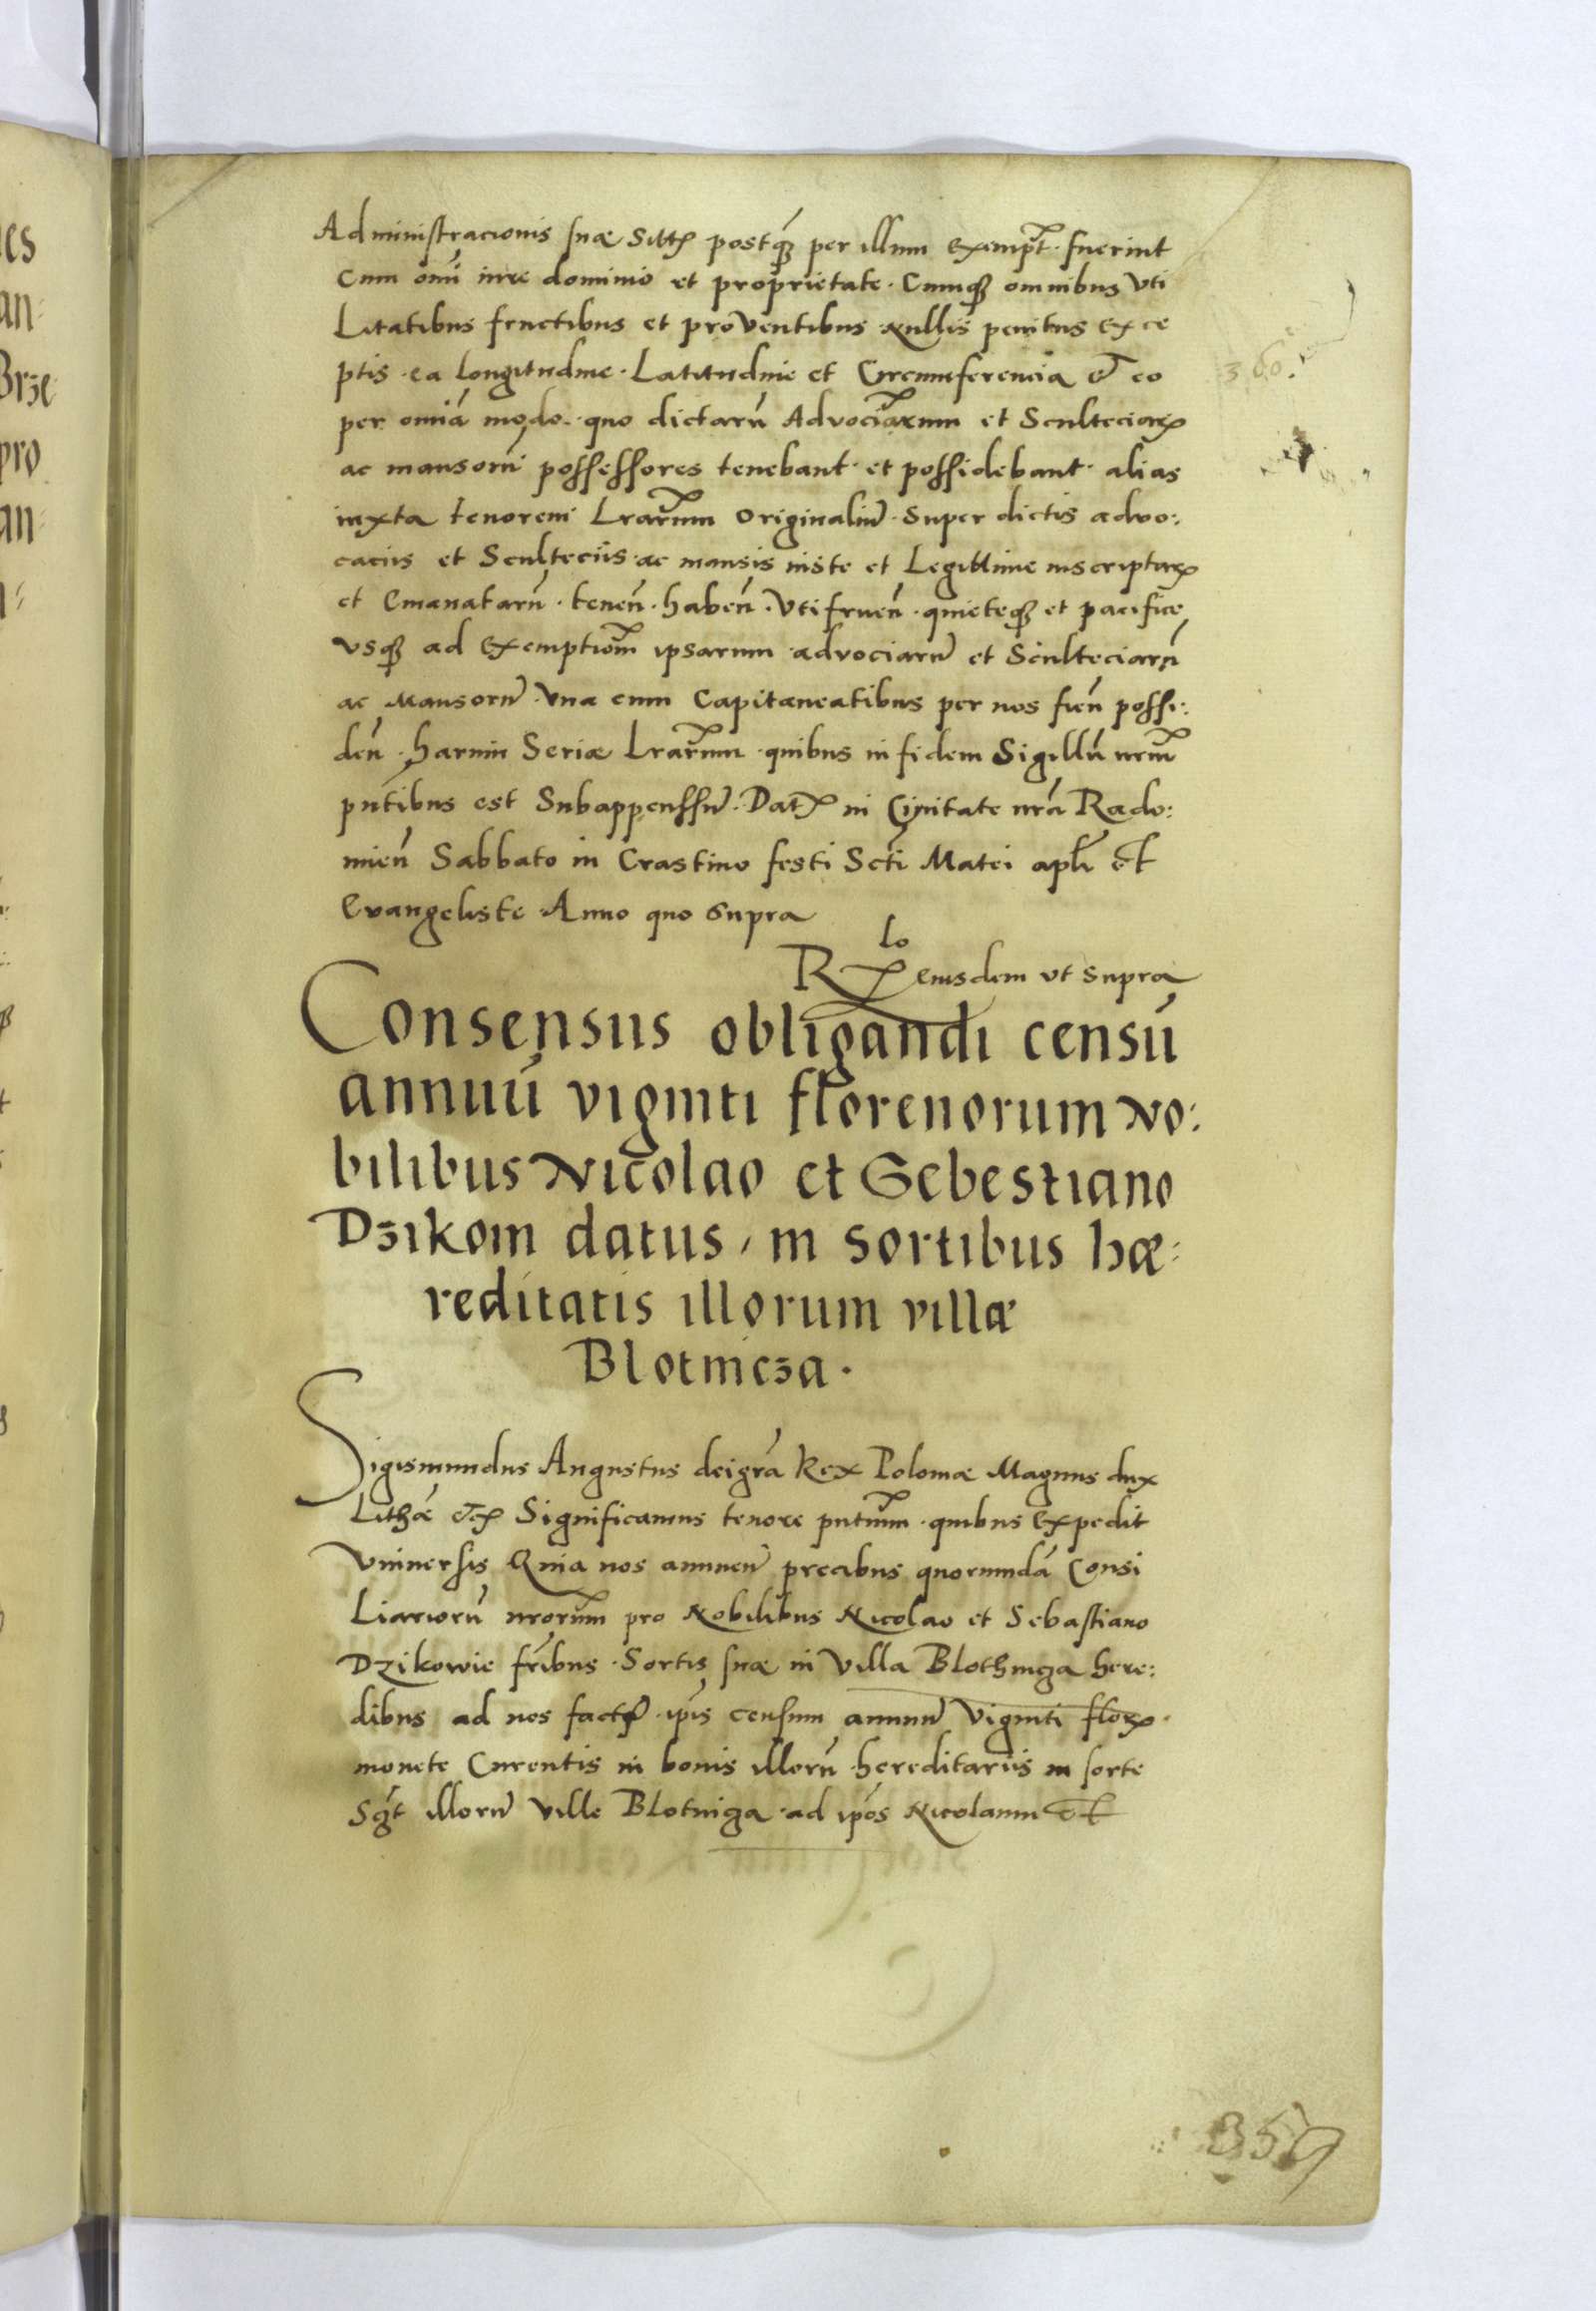 Administracionis suæ Sitt postq̃ȝ per illum exempt̃ · fuerint
Cum om̃i iure dominio et proprietate · Cumqȝ omnibus Vti
Litatibus fructibus et proVentibus Nullis penitus Exce
ptis · ea longitudine · Latitudine et Circumferencia et eo
per om̃ia modo · quo dictarũ Advoc̃iarum et Scultecia℞
ac mansorũ possessores tenebant · et possidebant · alias
iuxta tenorem Lr̃arum Originaliũ · Super dictis advo:
caciis et Sculteciis ac mansis iuste et Legittime inscriptar
et Emanatarũ · teneñ · habeñ · Vtifrueñ · quieteqȝ et pacifice
vsqȝ ad Exemptiom̃ ipsarum advociarũ et Sculteciarũ
ac Mansorũ Vna cum Capitaneatibus per nos fieñ possi:
deñ · harum Seriæ Lr̃arum · quibus in fidem Sigillũ nr̃m
pñtibus est Subappenssũ · Dat in Ciuitate nr̃a Rado:
mieñ Sabbato in Crastino festi Scti Matei apl̃i et
Evangeliste Anno quo supra
Rlo eiusdem vt supra
Consensus obligandi censũ
annuũ viginti florenorum No:
bilibus Nicolao et Sebestiano
Dzikom datus, in sortibus hæ:
reditatis illorum villæ
Blotnicza ·
Sigismundus Augustus dei gr̃a Rex Poloniæ Magnus dux
Lithãe etc Significamus tenore pñtium · quibus Expedit
Vniuersis Quia nos annueñ precibus quorundã Consi
Liariorũ nr̃orum pro Nobilibus Nicolao et Sebastiano
Dzikowie fr̃ibus · Sortis suæ in Villa Blothniga here:
dibus ad nos fact · ip̃is censum annuũ Viginti flor
monete Curentis in bonis illorũ hereditariis in sorte
Sg̃t illorũ Ville Blotniga · ad ip̃os Nicolaum et
360.
359